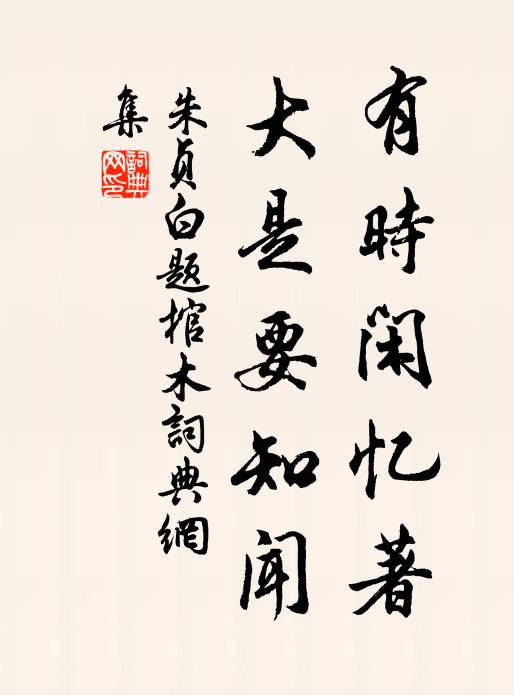 有時闲忆著
大是要知闻
朱貞白题棺木詞典網
集
詞典网印